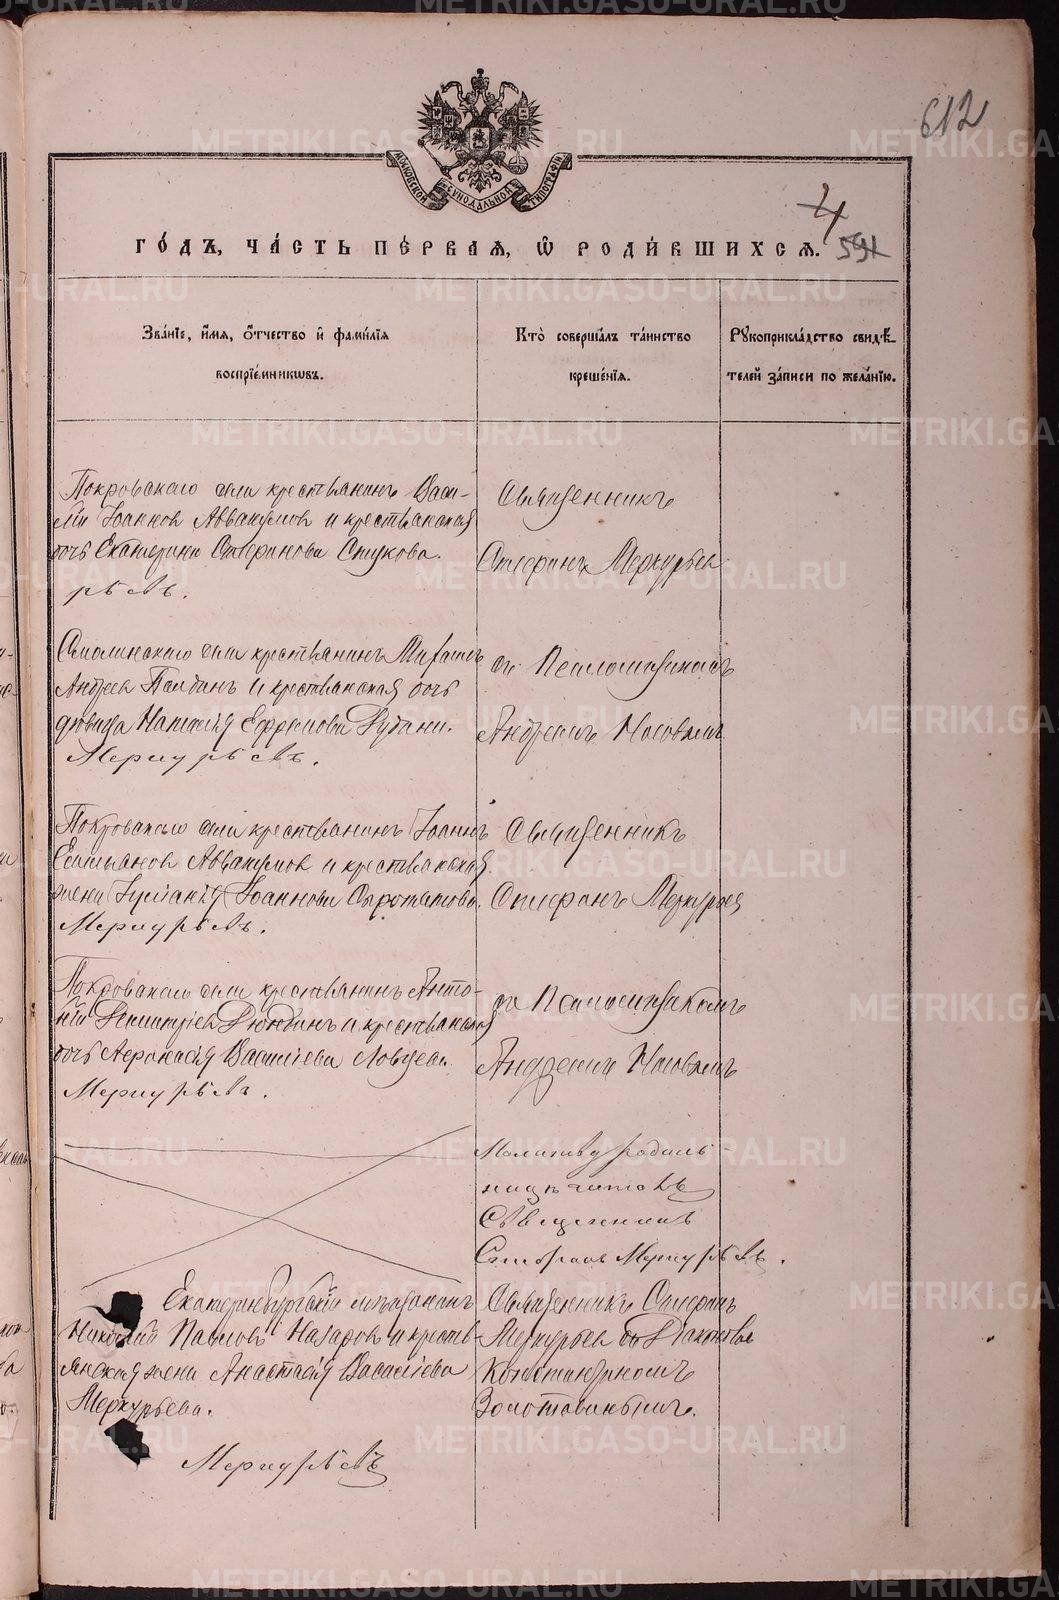 612
МОСКОВСКОЙ СѴНОДАЛЬНОЙ ТИПОГРАФІИ
4
591
ГО́ДЪ, ЧА́СТЬ ПЕ́РВАЯ, Ѡ҆ РОДИ́ВШИХСѦ.
Зва́нїе, и҆́мѧ, ѻ҆́тчество и҆ фами́лїѧ
воспрїе́мникѡвъ.
Кто̀ соверша́лъ та́инство
креще́нїѧ.
Рꙋкоприкла́дство свидѣ́-
телей за́писи по жела́нїю.
Покровскаго села крестьянинъ Васи-
лій Іоанновъ Аввакумовъ и крестьянская
дочь Екатерина Стефанова Стукова.
Священникъ
Стефанъ Меркурьев
Смолинскаго села крестьянинъ Михаилъ
Андреевъ и крестьянская дочь
дѣвица Наталія Ефремова
Меркурьевъ.
съ Псаломщикомъ
Андреемъ Носовымъ
Покровскаго села крестьянинъ Іоаннъ
Аввакумовъ и крестьянская
жена Іуліанія Іоаннова
Меркурьевъ.
Священникъ
Стефанъ Меркурьев
Покровскаго села крестьянинъ Анто-
ній Димитріевъ и крестьянская
дочь Афанасія Васильева
Меркурьевъ.
съ Псаломщикомъ
Андреемъ Носовымъ
Молитву родиль
ницѣ читалъ
Священникъ
Стефанъ Меркурьевъ.
Екатеринбургскій мѣщанинъ
Николай Павловъ Назаровъ и кресть-
янская жена Анастасія Васильева
Меркурьева.
Меркурьевъ
Священникъ Стефанъ
Меркурьевъ съ Діакономъ
Константиномъ
Золотавинымъ.
METRIKI.GASO-URAL.RU